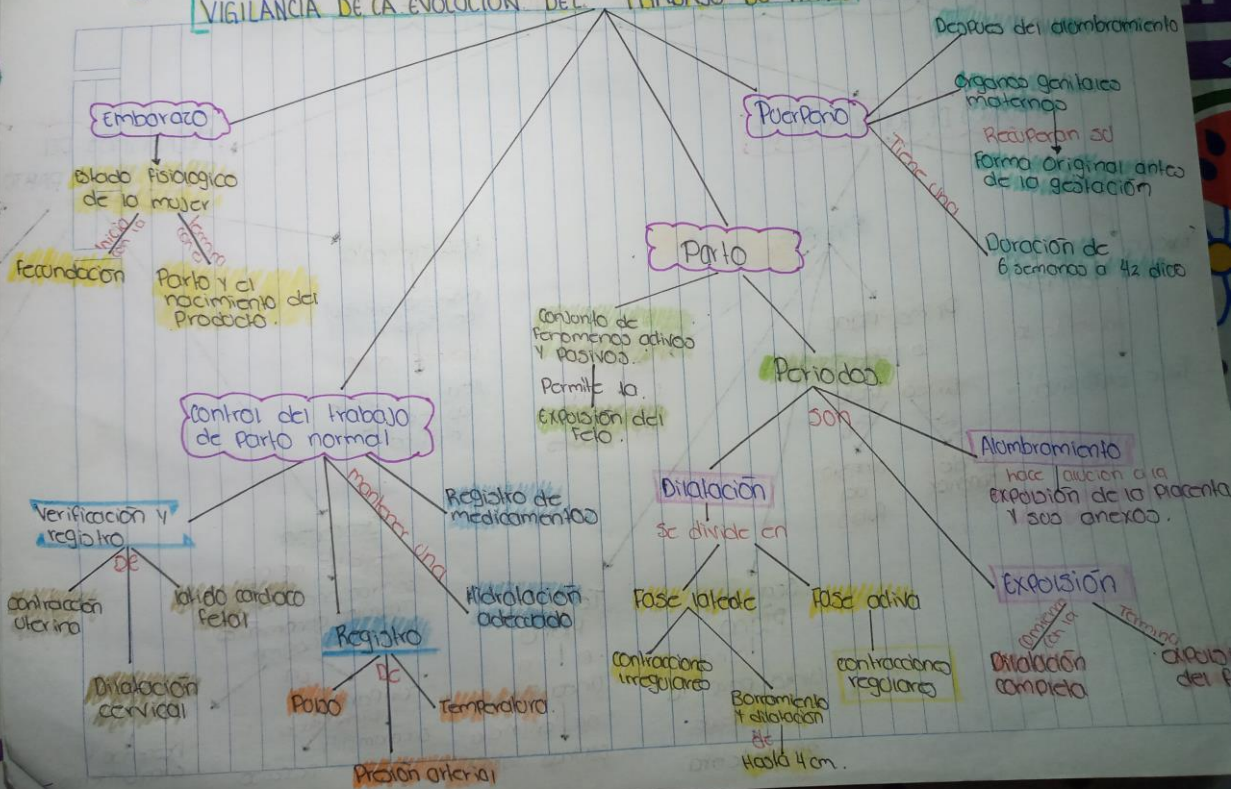 VIGILANCIA DE LA EVOLUCIÓN DEL
Embarazo
estado fisiologico
de la mujer
Inicia
con la
Fecundación
termina
con el
Parto y el
nacimiento del
Producto.
control del trabajo
de parto normal
Verificación y
registro
DE
contracción
uterina
Dilatación
cervical
latido cardiaco
fetal
Registro
De
Pulso
Presión arterial
Temperatura
mantener una
Hidratación
adecuada
Registro de
medicamentos
Parto
conjunto de
fenomenos activos
Y pasivos.
Permite la
Expulsión del
feto.
Periodos.
son
Dilatación
se divide en
Fase latente
contracciones
irregulares
Borramiento
y dilatación
de
Hasta 4 cm.
Fase activa
contracciones
regulares
Alumbramiento
hace alución a la
expulsión de la placenta
Y sus anexos.
Expulsión
comienza
con la
Dilatación
completa
Termina
del
Puerperio
Despues del alumbramiento
organos genitales
maternos
Recuperan su
Forma original antes
de la gestación
Tiene una
Duración de
6 semanas a 42 dias